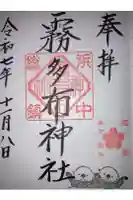 奉拝
霧多布神社
令和七年十一月八日
浜中